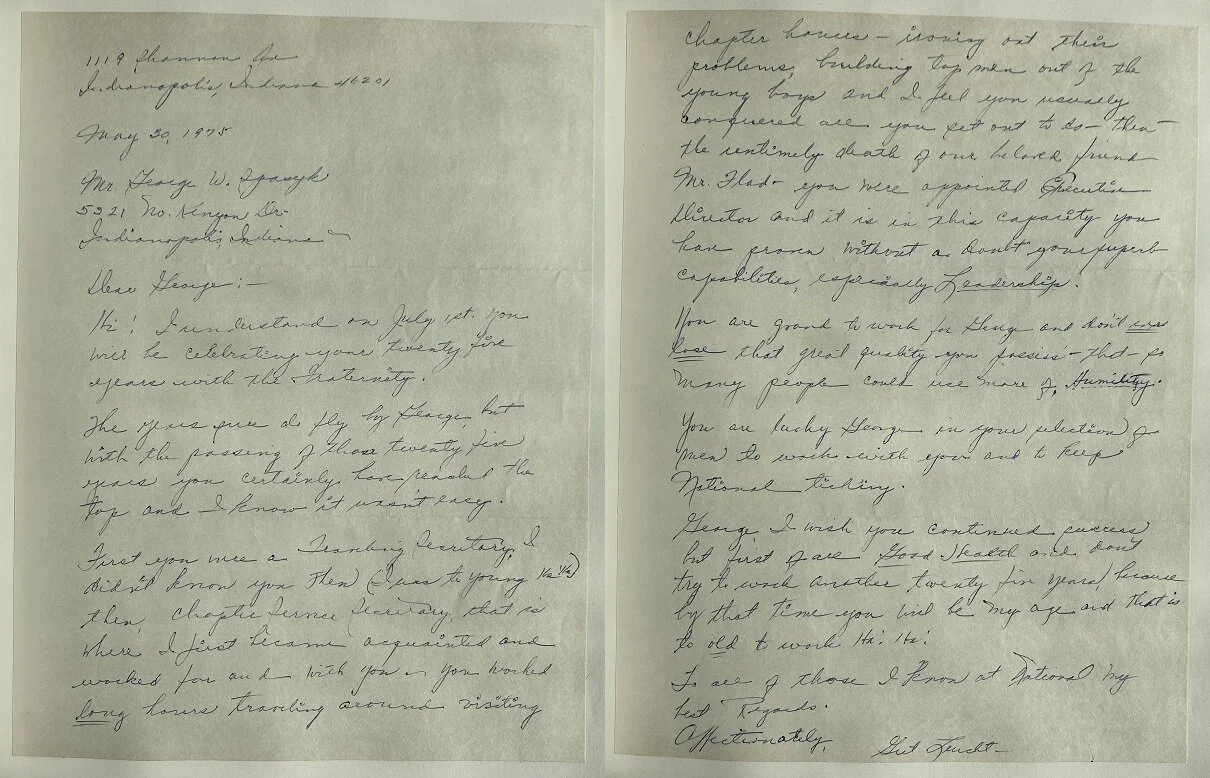 1119 Shannon Av
Indianapolis, Indiana 46201
May 30, 1975
Mr George W. Spasyk
5321 No. Kenyon Dr.
Indianapolis, Indiana
Dear George: -
Hi! I understand on July 1st. you
will be celebrating your twenty five
years with the Fraternity.
The years sure do fly by George, but
with the passing of those twenty five
years you certainly have reached the
top and I know it wasn't easy.
First you were a Traveling Secretary, I
didn't know you then (I was to young Ha! Ha!)
then, Chapter Service Secretary, that is
where I first became acquainted and
worked for and with you. You worked
long hours traveling around visiting
chapter houses - ironing out their
problems, building top men out of the
young boys and I feel you usually
conquered all you set out to do - then -
the untimely death of our beloved friend
Mr. Flad - you were appointed Executive
Director and it is in this capacity you
have proven without a doubt your superb
capabilities, especially Leadership.
You are grand to work for George and don't ever
lose that great quality you possess - that - so
many people could use more of, Humility.
You are lucky George in your selection of
men to work with you and to keep
National ticking.
George, I wish you continued success
but first of all Good Health and don't
try to work another twenty five years, because
by that time you will be my age and that is
to old to work Ha! Ha!
To all of those I know at National my
best Regards.
Affectionately,
Leucht -